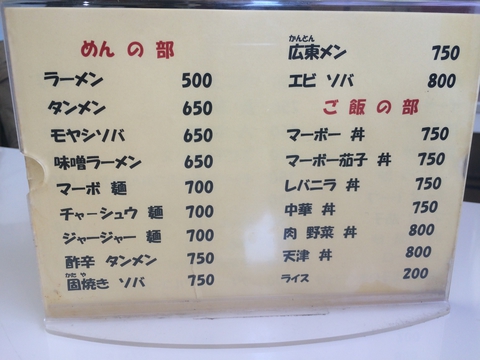 めんの部
ラーメン 500
タンメン 650
モヤシソバ 650
味噌ラーメン 650
マーボ 麺 700
チャーシュウ 麺 700
ジャージャー 麺 700
酢辛 タンメン 750
かた や
固焼き ソバ 750
かんとん
広東メン 750
エビ ソバ 800
ご飯の部
マーボー 丼 750
マーボー茄子 丼 750
レバニラ 丼 750
中華 丼 750
肉 野菜 丼 800
天津 丼 800
ライス 200